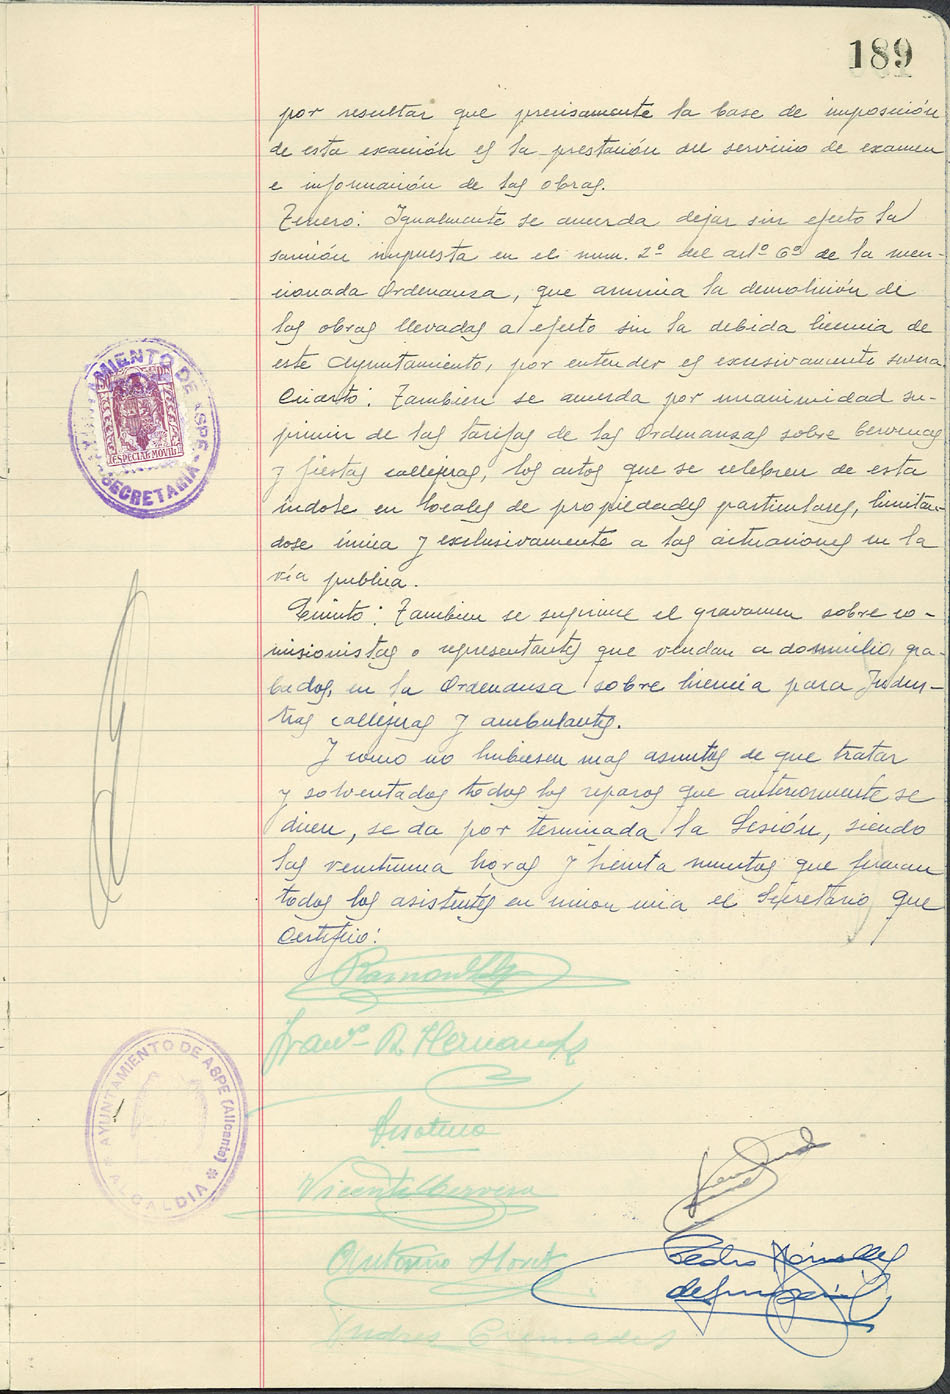 189
por resultar que precisamente la base de imposición
de esta exacción es la prestación del servicio de examen
e información de las obras.
Tercero: Igualmente se acuerda dejar sin efecto la
sanción impuesta en el num. 2º del artº 6º de la men-
cionada Ordenanza, que anuncia la demolición de
las obras llevadas a efecto sin la debida licencia de
este Ayuntamiento, por entender es excesivamente severa.
Cuarto: Tambien se acuerda por unanimidad su-
primir de las tarifas de las Ordenanzas sobre verbenas
y fiestas callejeras, los actos que se celebren de esta
índole en locales de propiedades particulares, limitan-
dose única y exclusivamente a las actuaciones en la
vía publica.
Quinto: Tambien se suprime el gravamen sobre co-
misionistas o representantes que vendan a domicilio, gra-
bados, en la Ordenanza sobre licencia para Indus-
trias callejeras y ambulantes.
Y como no hubiesen mas asuntos de que tratar
y solventados todos los reparos que anteriormente se
dicen, se da por terminada la Sesión, siendo
las veintiuna horas y treinta minutos que firman
todos los asistentes en union mia el Secretario que
Certifico:
AYUNTAMIENTO DE ASPE
SECRETARIA
ESPECIAL MOVIL
Franº R. Hernandez
Vicente Cervera
AYUNTAMIENTO DE ASPE (Alicante)
ALCALDIA
Antonio
Pedro
Andres Cremades